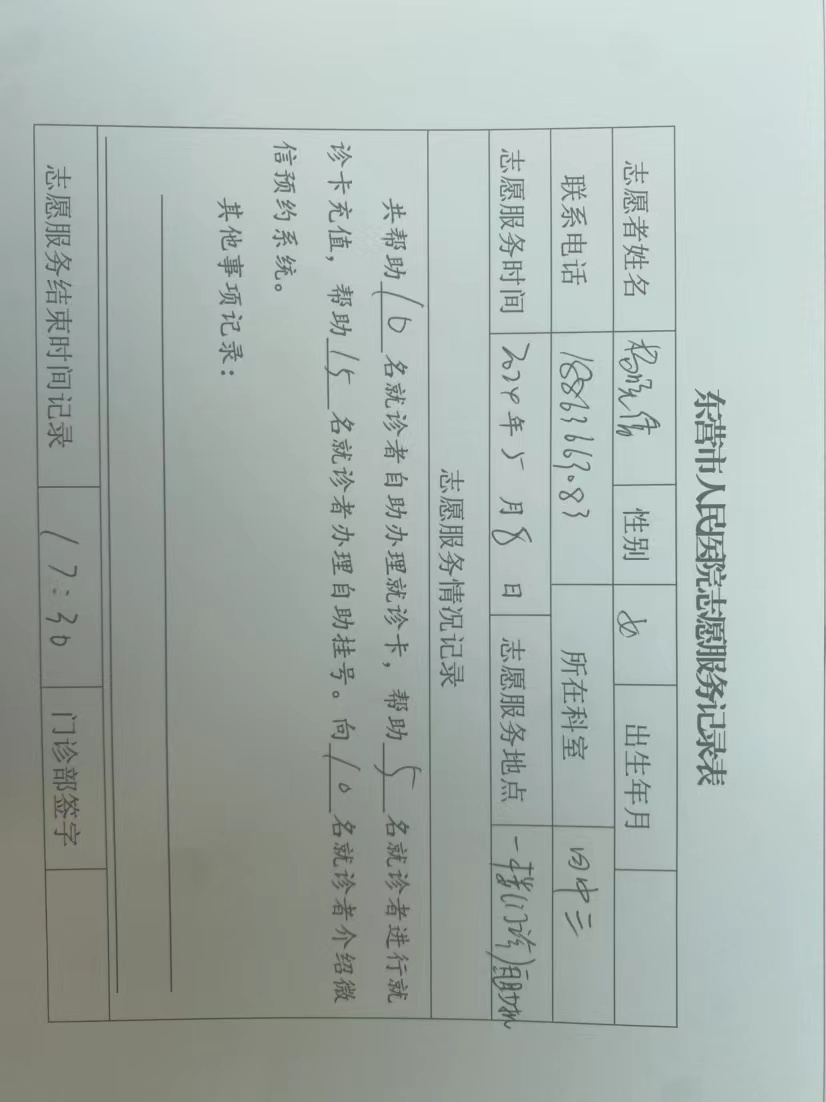 东营市人民医院志愿服务记录表
志愿者姓名 性别 女 出生年月
联系电话 18863663083 所在科室
志愿服务时间 2024年5月8日 志愿服务地点 一楼(门诊)自助机
志愿服务情况记录
共帮助10名就诊者自助办理就诊卡，帮助5名就诊者进行就
诊卡充值，帮助15名就诊者办理自助挂号。向10名就诊者介绍微
信预约系统。
其他事项记录：
志愿服务结束时间记录 17:30 门诊部签字